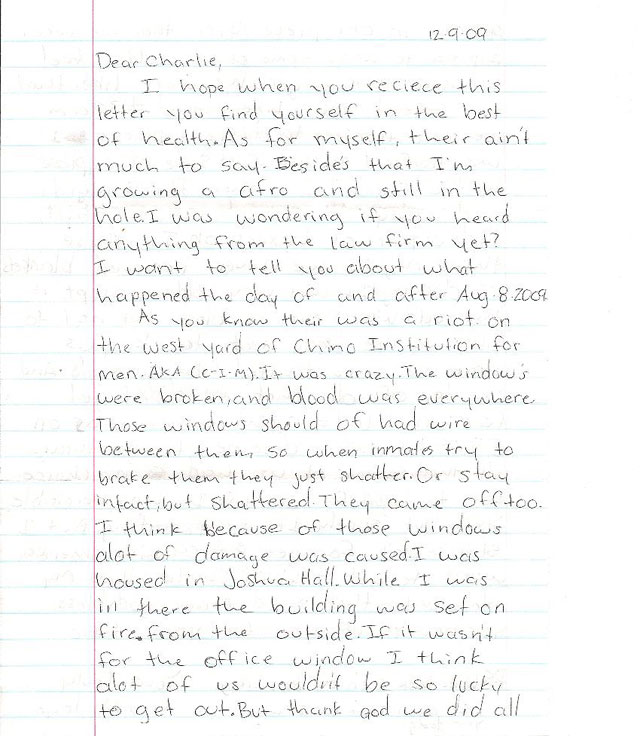 12-9-09
Dear Charlie,
I hope when you reciece this
letter you find yourself in the best
of health. As for myself, their ain't
much to say. Beside's that I'm
growing a afro and still in the
hole. I was wondering if you heard
anything from the law firm yet?
I want to tell you about what
happened the day of and after Aug. 8. 2009
As you know their was a riot on
the west yard of Chino Institution for
men. AKA (C-I-M). It was crazy. The window's
were broken, and blood was everywhere.
Those windows should of had wire
between them, so when inmates try to
brake them they just shatter. Or stay
intact, but shattered. They came off too.
I think because of those windows
alot of damage was caused. I was
housed in Joshua Hall. While I was
in there the building was set on
fire. From the outside. If it wasn't
for the office window I think
alot of us wouldn't be so lucky
to get out. But thank God we did all